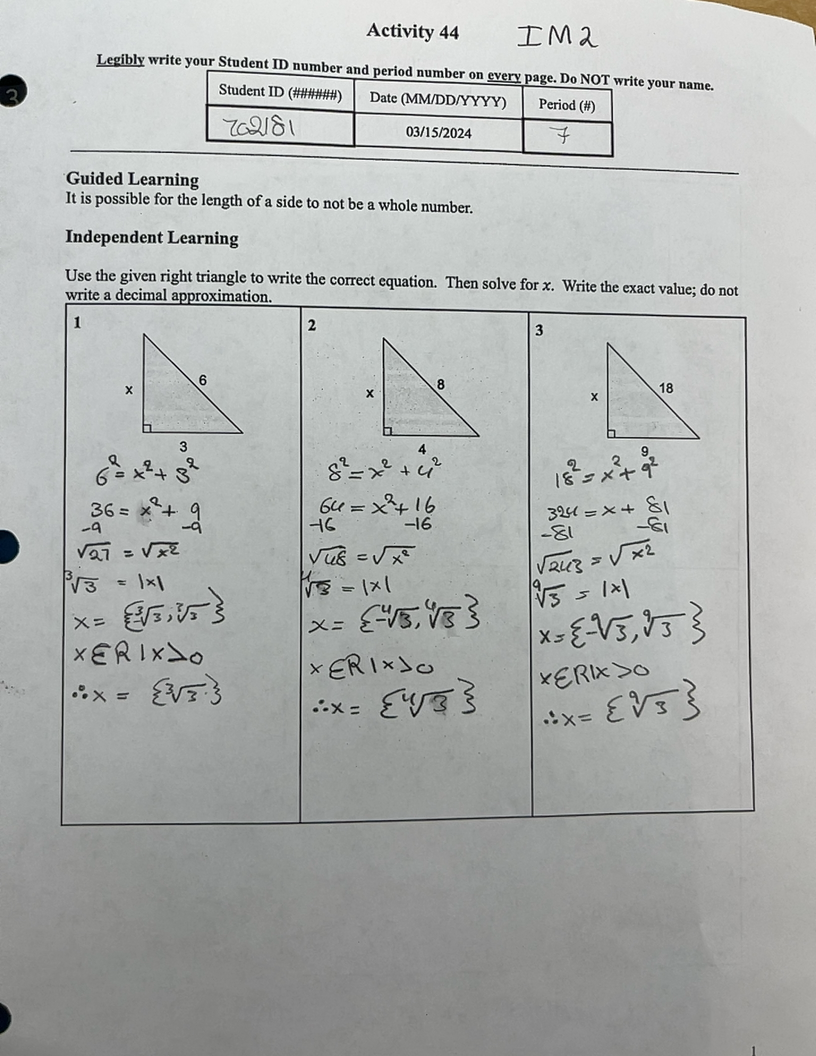 Activity 44 IM2
Legibly write your Student ID number and period number on every page. Do NOT write your name.
Student ID (######) Date (MM/DD/YYYY) Period (#)
702181 03/15/2024 7
Guided Learning
It is possible for the length of a side to not be a whole number.
Independent Learning
Use the given right triangle to write the correct equation. Then solve for x. Write the exact value; do not
write a decimal approximation.
1
x
6
3
6² = x² + 3²
36 = x² + 9
-9 -9
√27 = √x²
³√3 = |x|
x = {-³√3, ³√3}
x∈R|x>0
∴x = {³√3}
2
x
8
4
8² = x² + 4²
64 = x² + 16
-16 -16
√48 = √x²
⁴√3 = |x|
x = {-⁴√3, ⁴√3}
x∈R|x>0
∴x = {⁴√3}
3
x
18
9
18² = x² + 9²
324 = x + 81
-81 -81
√243 = √x²
⁹√3 = |x|
x = {-⁹√3, ⁹√3}
x∈R|x>0
∴x = {⁹√3}